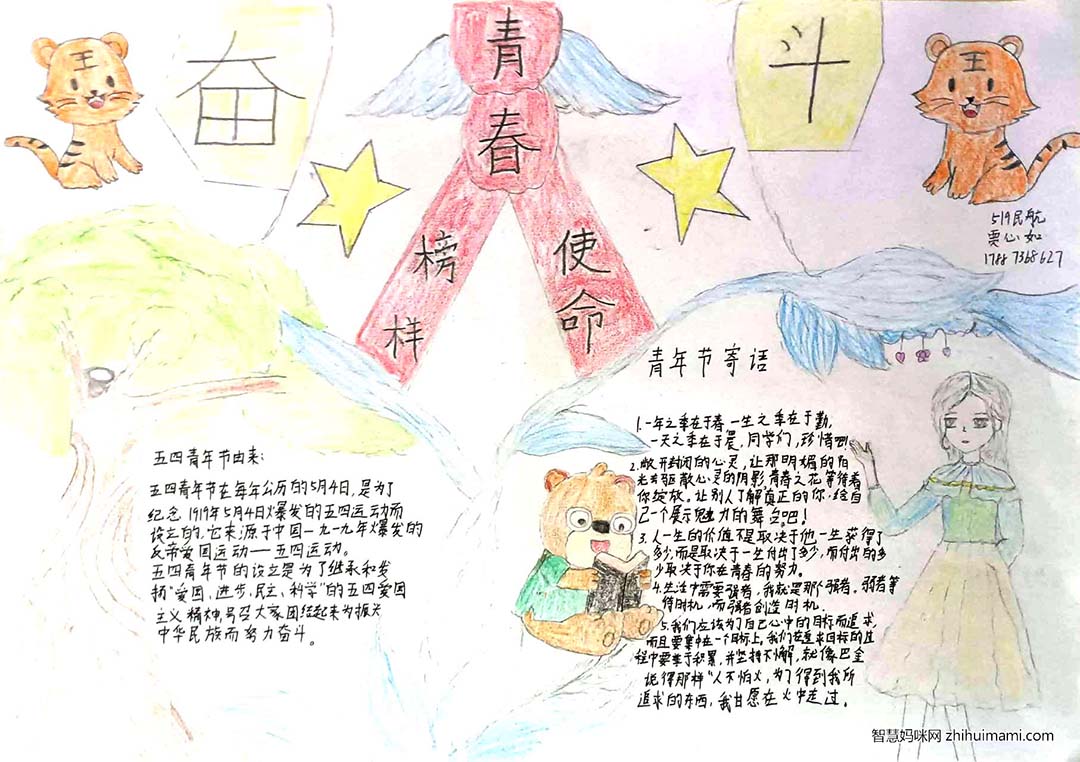 奋
青
春
斗
榜
样
使
命
519民航
栗心如
五四青年节由来:
五四青年节在每年公历的5月4日,是为了
纪念1919年5月4日爆发的五四运动而
设立的,它来源于中国一九一九年爆发的
反帝爱国运动——五四运动。
五四青年节的设立是为了继承和发
扬“爱国、进步、民主、科学”的五四爱国
主义精神,号召大家团结起来为振兴
中华民族而努力奋斗。
青年节寄语
1.一年之季在于春,一生之季在于勤,
一天之季在于晨,同学们,珍惜
2.敞开封闭的心灵,让那明媚的阳
光去驱散心灵的阴影,青春之花等待着
你绽放。让别人了解真正的你,给自
己一个展示魅力的舞台吧!
3.人一生的价值不是取决于他一生获得了
多少,而是取决于一生付出了多少,而付出的多
少取决于你在青春的努力。
4.生活中需要强者,我就是那个强者。弱者等
待时机,而强者创造时机.
5.我们应该为了自己心中的目标而追求,
而且要集中在一个目标上,我们在追求目标的过
程中要善于积累,并坚持不懈,就像巴金
说得那样“人不怕火,为了得到我所
追求的东西,我甘愿在火中走过。
智慧妈咪网 zhihuimami.com